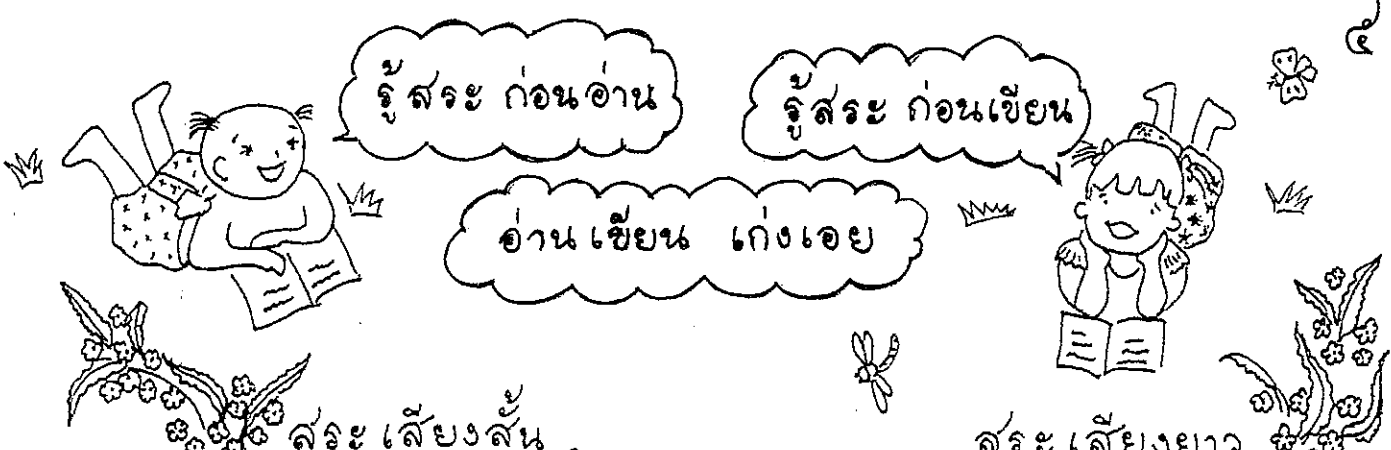 ๕
รู้สระ ก่อนอ่าน
รู้สระ ก่อนเขียน
อ่านเขียน เก่งเอย
สระเสียงสั้น
สระเสียงยาว